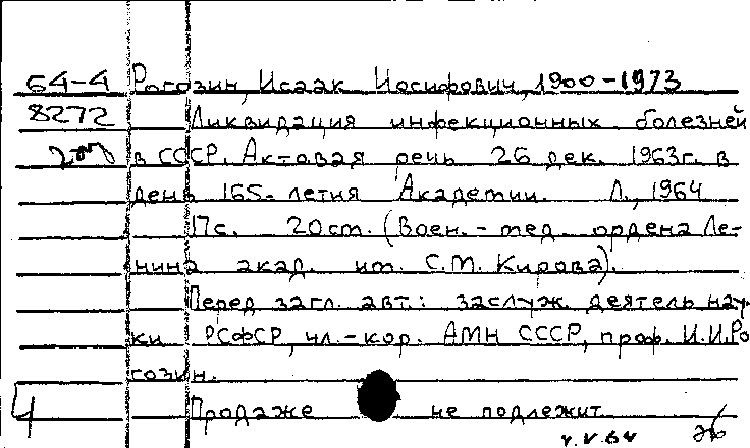 64-4 Рогозин, Исаак Иосифович, 1900-1973
8272 Ликвидация инфекционных болезней
в СССР. Актовая речь 26 дек. 1963г. в
день 165-летия Академии. Л., 1964
17с. 20см. (Воен.-мед. ордена Ле-
нина акад. им. С.М. Кирова).
Перед загл. авт.: заслуж. деятель нау-
ки РСФСР, чл.-кор. АМН СССР, проф. И.И.Ро
гозин.
Продаже не подлежит